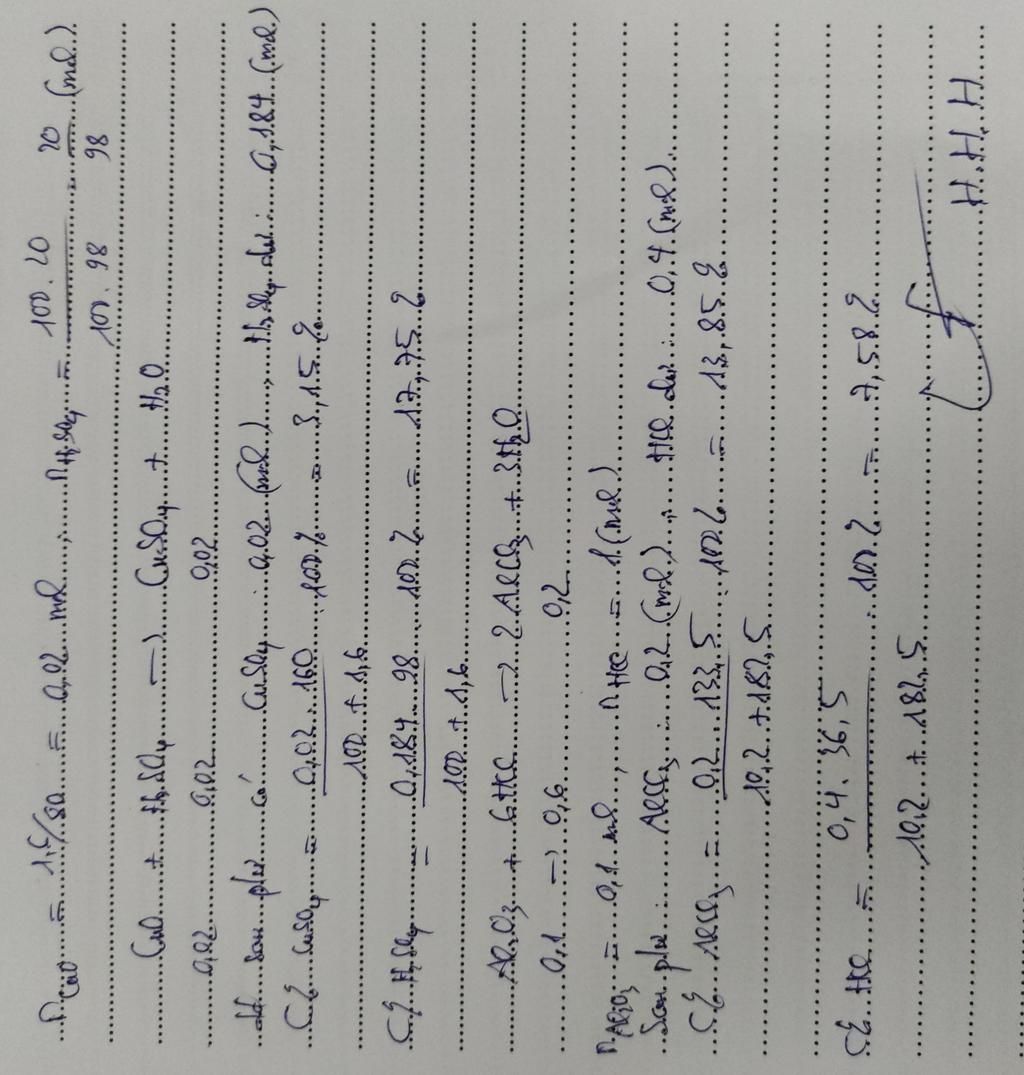 nCuO = 1,6/80 = 0,02 mol , nH2SO4 = 100 . 20 / 100 . 98 = 20 / 98 (mol)
CuO + H2SO4 → CuSO4 + H2O
0,02 0,02 0,02
dd sau pứ có CuSO4 : 0,02 (mol) , H2SO4 dư : 0,184 (mol)
C% CuSO4 = 0,02 . 160 / 100 + 1,6 . 100% = 3,15 %
C% H2SO4 = 0,184 . 98 / 100 + 1,6 . 100% = 17,75 %
Al2O3 + 6HCl → 2AlCl3 + 3H2O
0,1 → 0,6 0,2
nAl2O3 = 0,1 mol , nHCl = 1 (mol)
Sau pứ : AlCl3 : 0,2 (mol) , HCl dư : 0,4 (mol)
C% AlCl3 = 0,2 . 133,5 / 10,2 + 182,5 . 100% = 13,85 %
C% HCl = 0,4 . 36,5 / 10,2 + 182,5 . 100% = 7,58 %
H.H.H